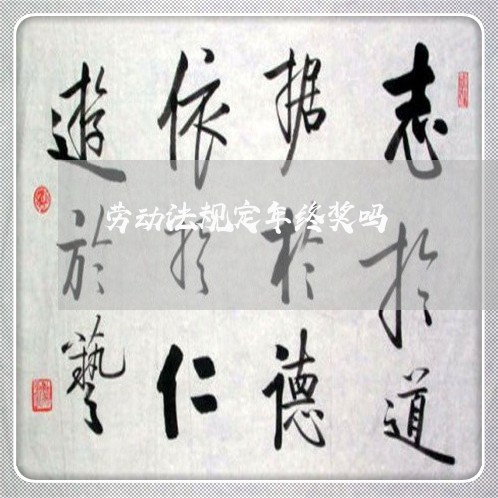 志於道
据於德
依於仁
遊於藝
劳动法规定年终奖吗